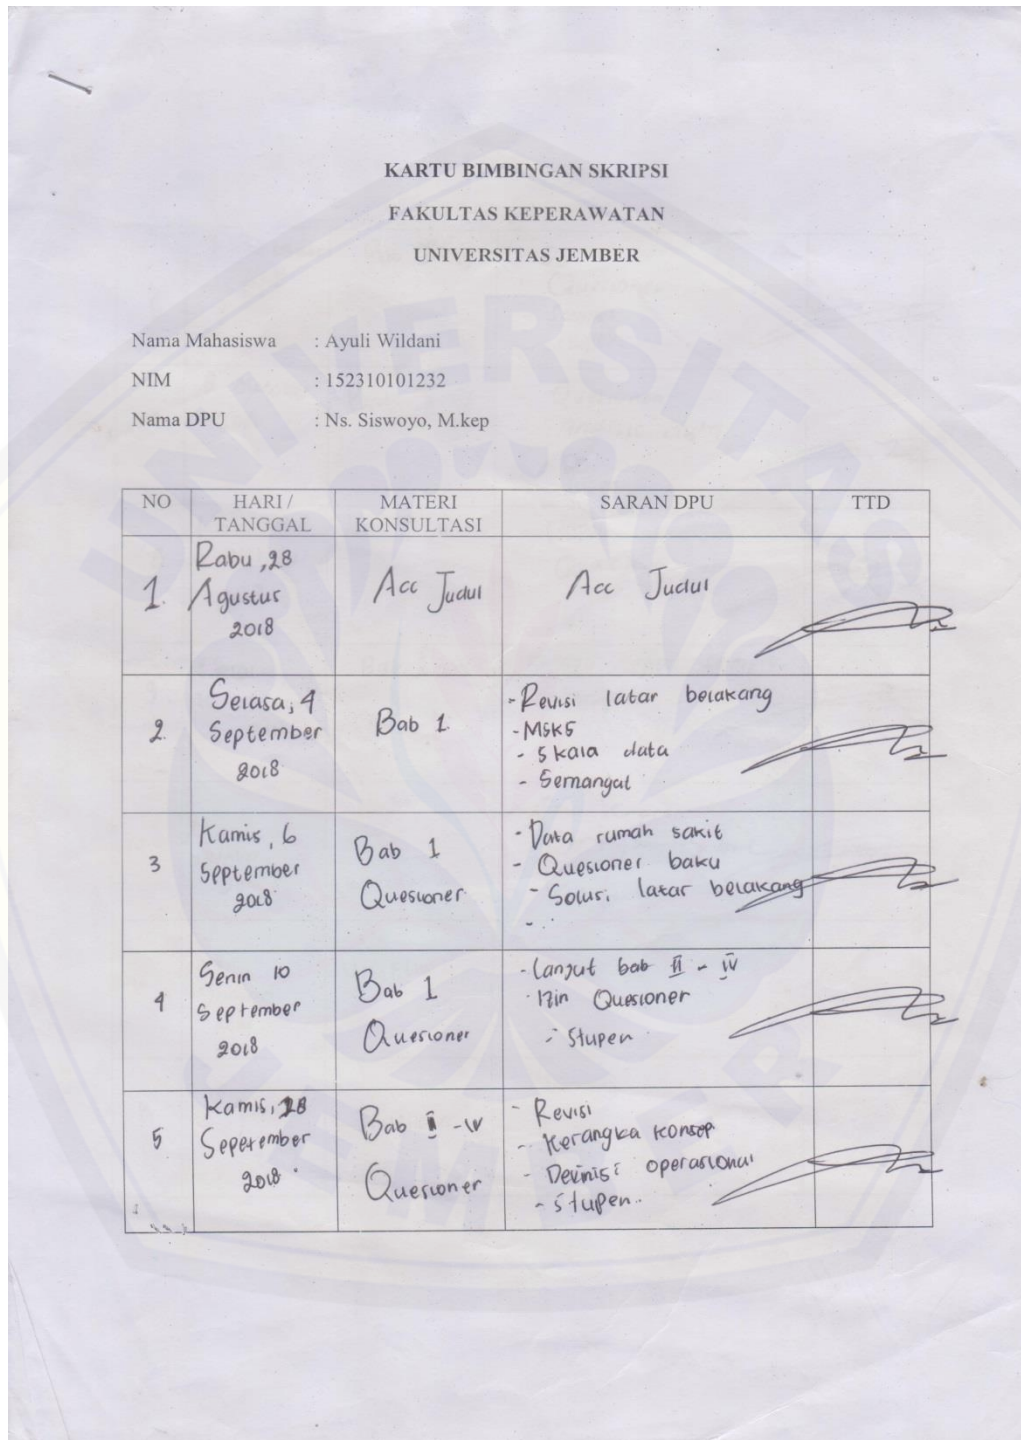 KARTU BIMBINGAN SKRIPSI
FAKULTAS KEPERAWATAN
UNIVERSITAS JEMBER
Nama Mahasiswa : Ayuli Wildani
NIM : 152310101232
Nama DPU : Ns. Siswoyo, M.kep
NO HARI / TANGGAL MATERI KONSULTASI SARAN DPU TTD
1. Rabu, 28
Agustus
2018
Acc Judul
Acc Judul
2. Selasa, 4
September
2018
Bab 1
- Revisi latar belakang
- MSKS
- Skala data
- Semangat
3 Kamis, 6
September
2018
Bab 1
Quesioner
- Data rumah sakit
- Quesioner baku
- Solusi latar belakang
-
4 Senin 10
September
2018
Bab 1
Quesioner
- lanjut bab II - IV
- Izin Quesioner
- Stupen
5 Kamis,
Sepetember
2018
Bab II - IV
Quesioner
- Revisi
- Kerangka Konsep
- Devinisi operasional
- Stupen
UNIVERSITAS
JEMBER